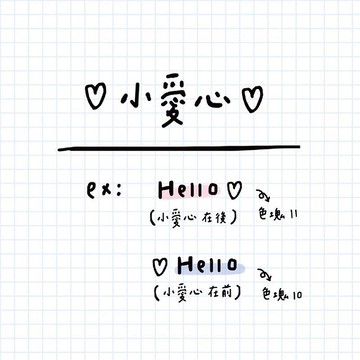 ♡ 小愛心 ♡
ex: Hello ♡ 色塊 11
(小愛心 在後)
♡ Hello 色塊 10
(小愛心 在前)